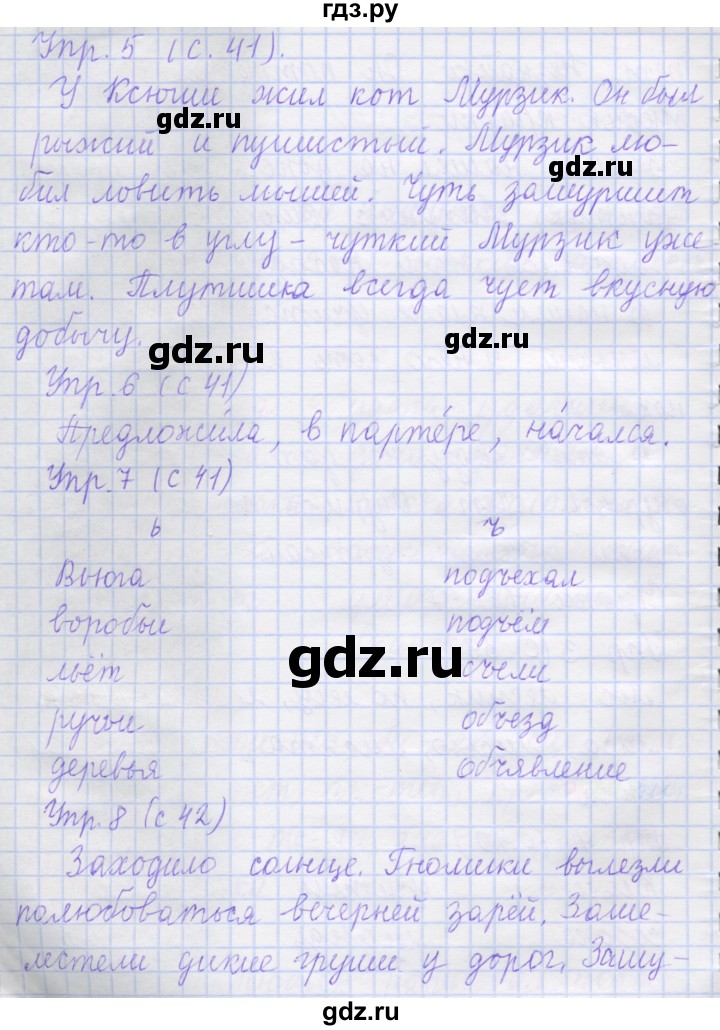 гдз.ру
Упр. 5 (с. 41).
У Ксюши жил кот Мурзик. Он был
gdz.ru gdz.ru
рыжий и пушистый. Мурзик лю-
бил ловить мышей. Чуть зашуршит
кто-то в углу – чуткий Мурзик уже
там. Плутишка всегда чует вкусную
добычу.
gdz.ru gdz.ru
Упр. 6 (с 41)
Предложи́ла, в парте́ре, на́чался.
Упр. 7 (с 41)
ь ъ
Вьюга подъехал
воробьи подъём
gdz.ru
льёт съели
ручьи объезд
деревья объявление
Упр. 8 (с 42)
Заходило солнце. Гномики вылезли
полюбоваться вечерней зарёй. Заше-
лестели дикие груши у дорог. Зашу-
gdz.ru gdz.ru